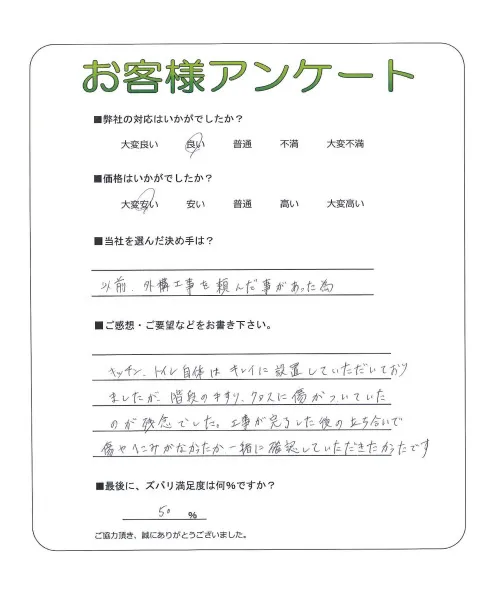 お客様アンケート
■弊社の対応はいかがでしたか？
大変良い 良い 普通 不満 大変不満
■価格はいかがでしたか？
大変安い 安い 普通 高い 大変高い
■当社を選んだ決め手は？
以前、外構工事を頼んだ事があった為
■ご感想・ご要望などをお書き下さい。
キッチン、トイレ自体はキレイに設置していただいており
ましたが、階段の手すり、クロスに傷がついていた
のが残念でした。工事が完了した後の立ち合いで
傷やへこみがなかったか一緒に確認していただきたかったです
■最後に、ズバリ満足度は何％ですか？
50 %
ご協力頂き、誠にありがとうございました。